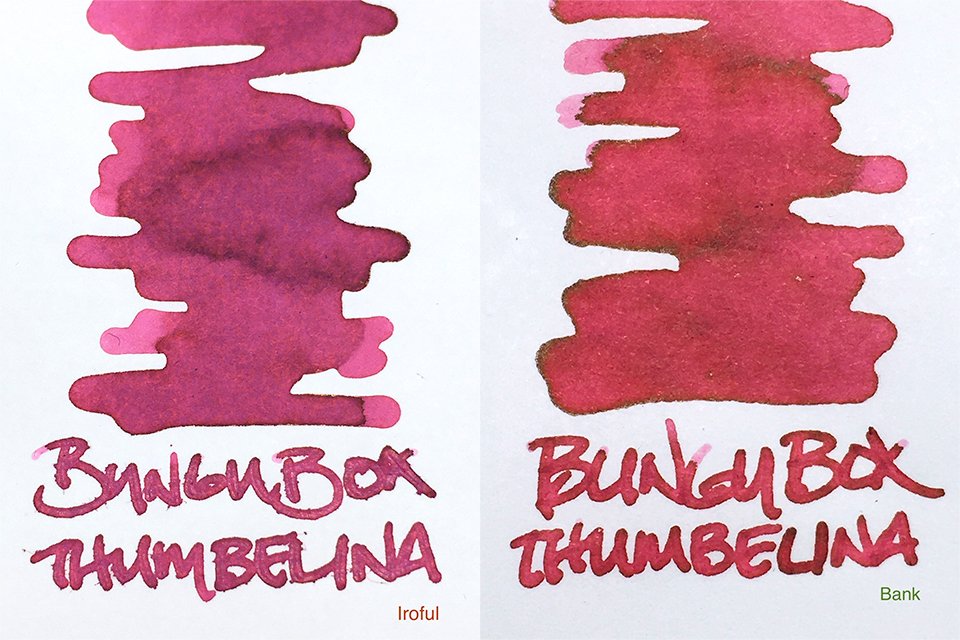 BUNGUBOX
THUMBELINA
Iroful
BUNGUBOX
THUMBELINA
Bank